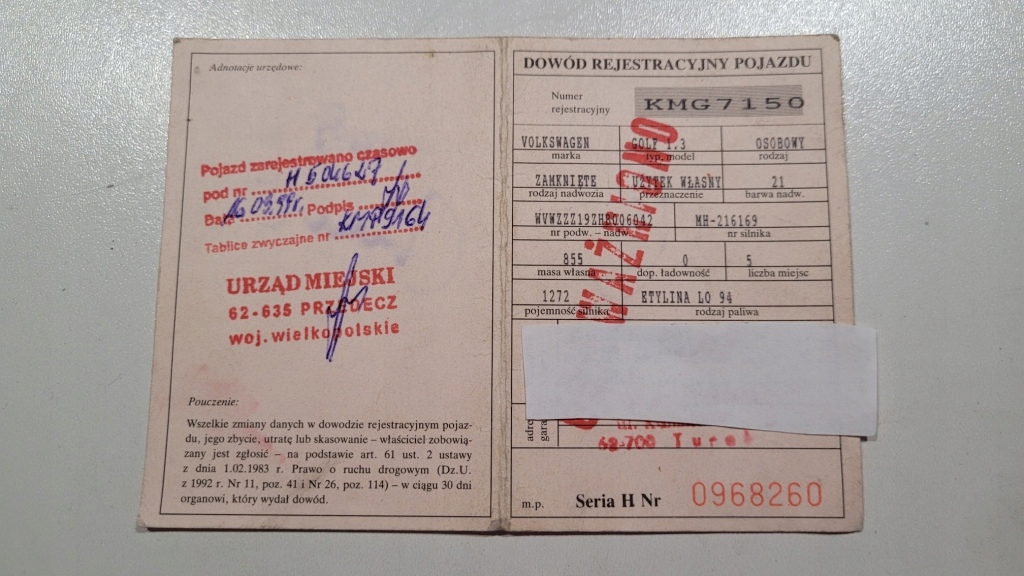 Adnotacje urzędowe:
Pojazd zarejestrowano czasowo
pod nr
Data 16.09.99r. Podpis
Tablice zwyczajne nr
URZĄD MIEJSKI
62-635 PRZEDECZ
woj. wielkopolskie
Pouczenie:
Wszelkie zmiany danych w dowodzie rejestracyjnym pojaz-
du, jego zbycie, utratę lub skasowanie – właściciel zobowią-
zany jest zgłosić – na podstawie art. 61 ust. 2 ustawy
z dnia 1.02.1983 r. Prawo o ruchu drogowym (Dz.U.
z 1992 r. Nr 11, poz. 41 i Nr 26, poz. 114) – w ciągu 30 dni
organowi, który wydał dowód.
DOWÓD REJESTRACYJNY POJAZDU
Numer
rejestracyjny
KMG7150
VOLKSWAGEN GOLF 1.3 OSOBOWY
marka typ, model rodzaj
ZAMKNIĘTE UŻYTEK WŁASNY 21
rodzaj nadwozia przeznaczenie barwa nadw.
MH-216169
nr podw. – nadw. nr silnika
855 0 5
masa własna dop. ładowność liczba miejsc
1272 ETYLINA LO 94
pojemność silnika rodzaj paliwa
62-700 Turek
m.p. Seria H Nr 0968260